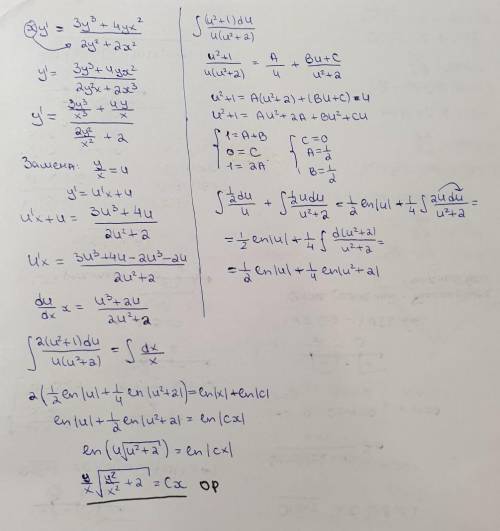 xy' = (3y³ + 4yx²)/(2y² + 2x²)
y' = (3y³ + 4yx²)/(2y²x + 2x³)
y' = (3y³/x³ + 4y/x)/(2y²/x² + 2)
Замена: y/x = u
y' = u'x + u
u'x + u = (3u³ + 4u)/(2u² + 2)
u'x = (3u³ + 4u - 2u³ - 2u)/(2u² + 2)
du/dx x = (u³ + 2u)/(2u² + 2)
∫ 2(u² + 1)du/(u(u² + 2)) = ∫ dx/x
2(1/2 ln|u| + 1/4 ln|u² + 2|) = ln|x| + ln|c|
ln|u| + 1/2 ln|u² + 2| = ln|cx|
ln(u√(u² + 2)) = ln|cx|
y/x √(y²/x² + 2) = Cx ОР
∫ (u² + 1)du/(u(u² + 2))
(u² + 1)/(u(u² + 2)) = A/u + (Bu + C)/(u² + 2)
u² + 1 = A(u² + 2) + (Bu + C)·u
u² + 1 = Au² + 2A + Bu² + Cu
{ 1 = A + B { C = 0
0 = C A = 1/2
1 = 2A B = 1/2
∫ (1/2 du)/u + ∫ (1/2 u du)/(u² + 2) = 1/2 ln|u| + 1/4 ∫ 2u du/(u² + 2) =
= 1/2 ln|u| + 1/4 ∫ d(u² + 2)/(u² + 2) =
= 1/2 ln|u| + 1/4 ln|u² + 2|